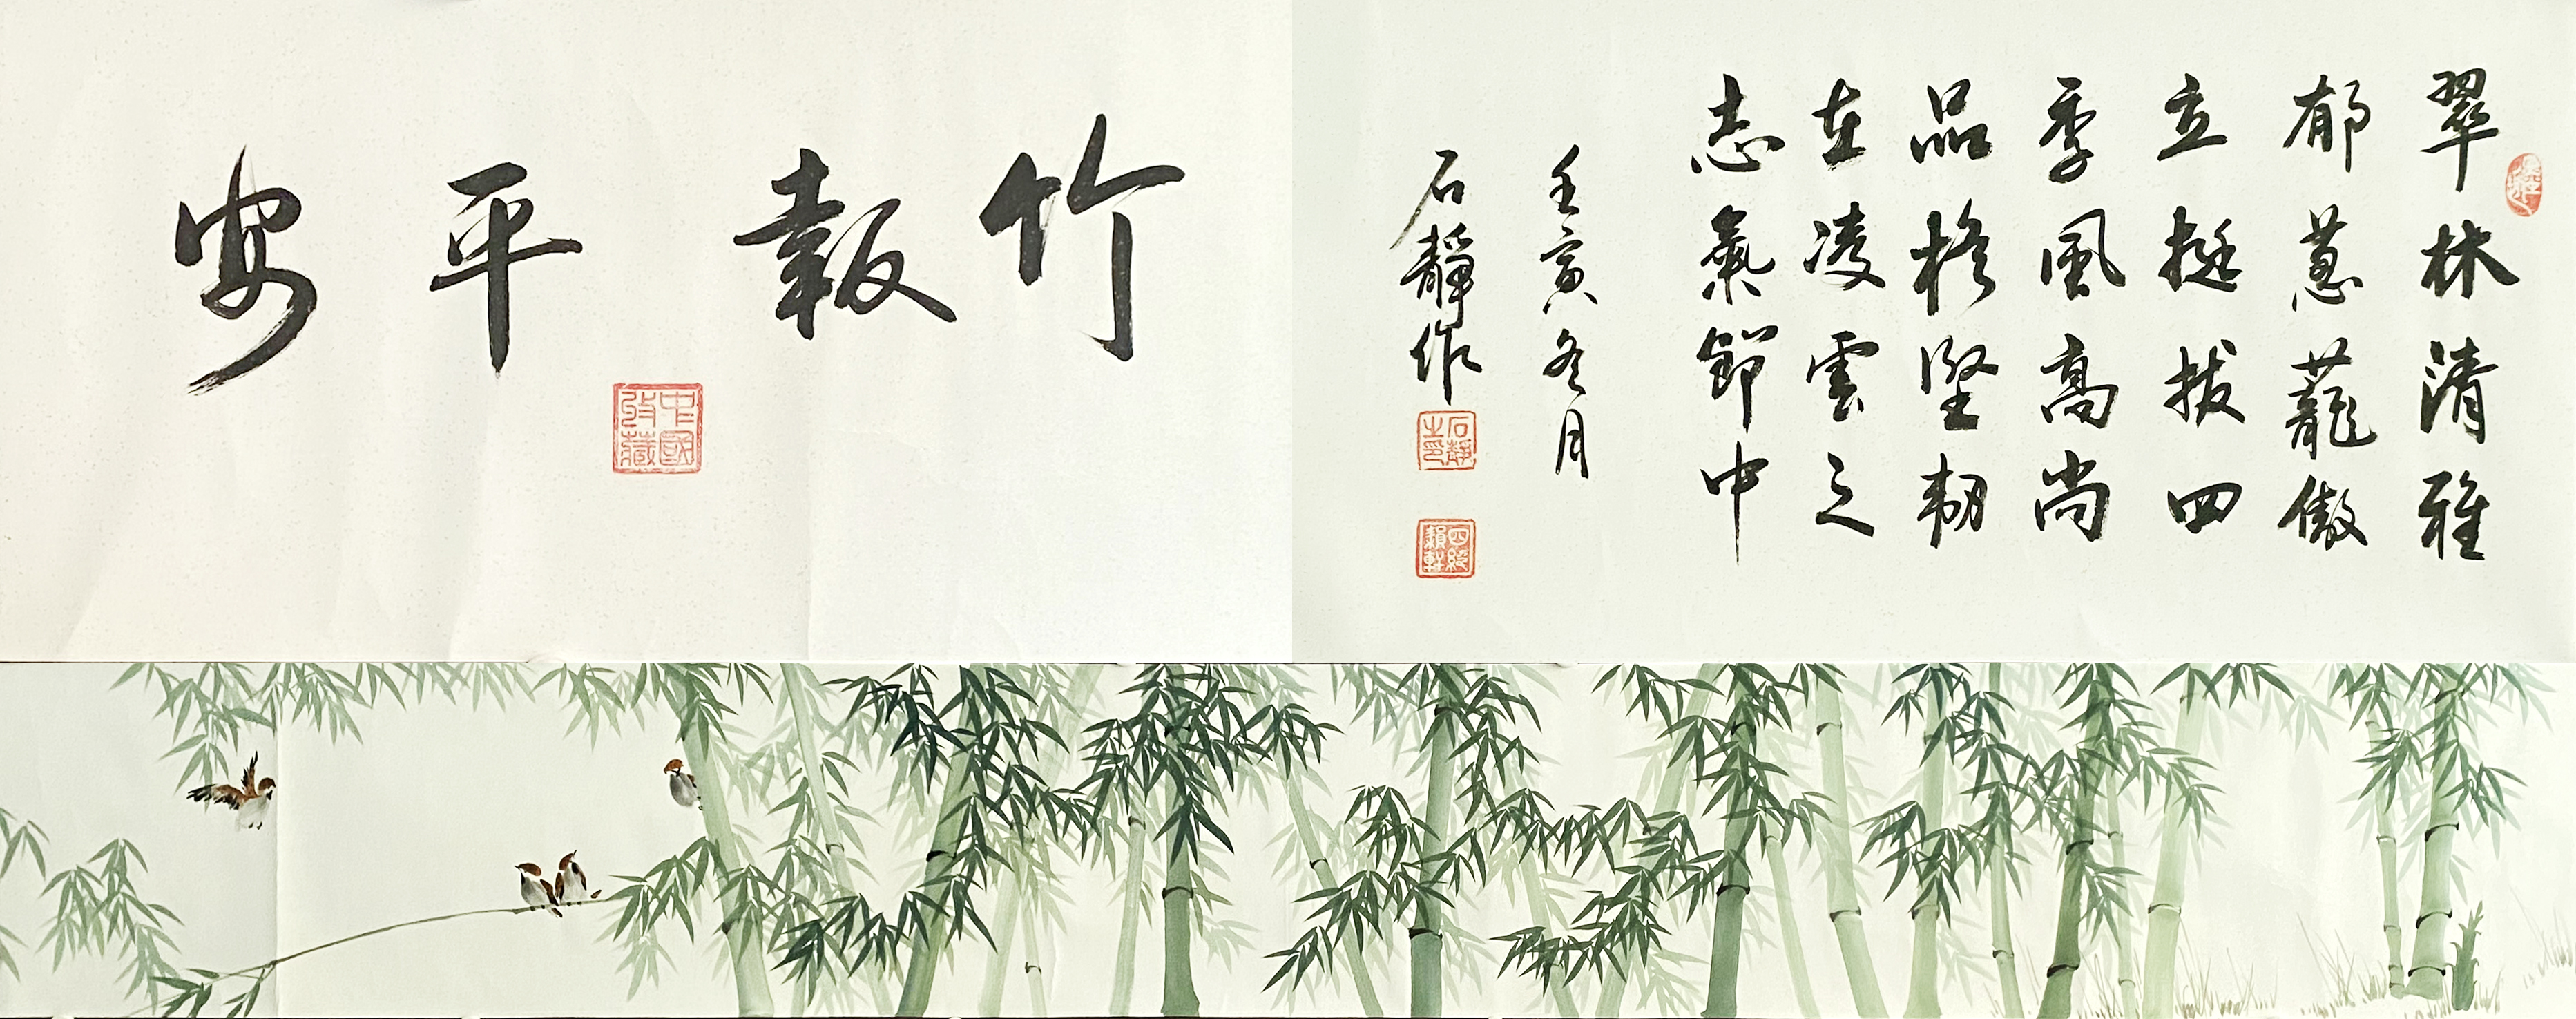 竹報平安
中國收藏
翠林清雅
郁葱蘢傲
立挺拔四
季風高尚
品格堅韌
在凌雲之
志氣節中
壬寅冬月
石靜作
石靜之印